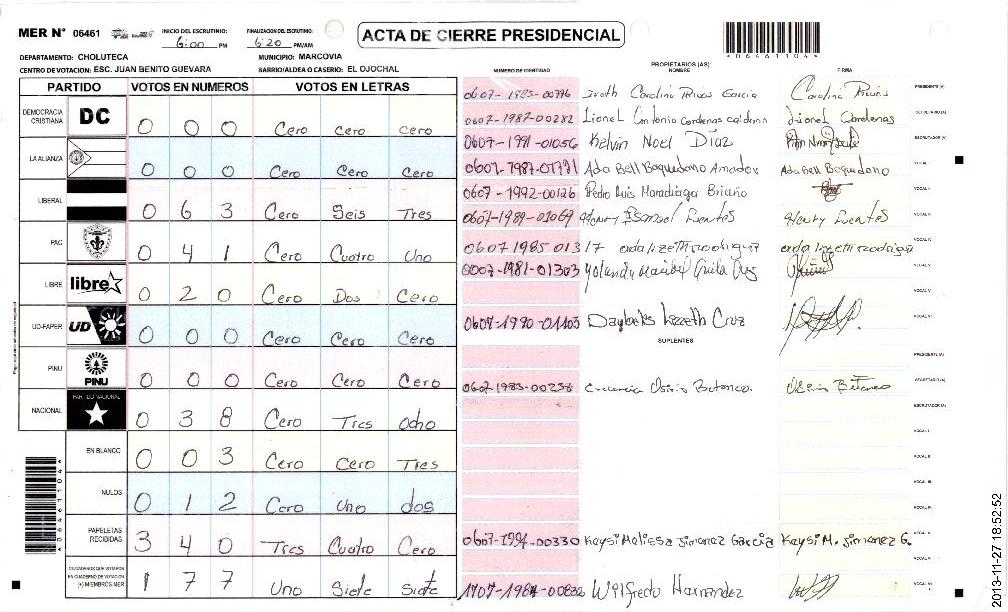 MER N° 06461 INICIO DEL ESCRUTINIO: 6:00 PM FINALIZACION DEL ESCRUTINIO: 6:20 PM/AM
ACTA DE CIERRE PRESIDENCIAL
DEPARTAMENTO: CHOLUTECA MUNICIPIO: MARCOVIA
CENTRO DE VOTACION: ESC. JUAN BENITO GUEVARA BARRIO/ALDEA O CASERIO: EL OJOCHAL
PARTIDO VOTOS EN NUMEROS VOTOS EN LETRAS
DEMOCRACIA CRISTIANA DC 0 0 0 Cero cero cero
LA ALIANZA 0 0 0 Cero Cero Cero
LIBERAL 0 6 3 Cero Seis Tres
PAC 0 4 1 Cero Cuatro Uno
LIBRE libre 0 2 0 Cero Dos Cero
UD-FAPER UD 0 0 0 Cero Cero Cero
PINU PINU 0 0 0 Cero Cero Cero
NACIONAL PARTIDO NACIONAL 0 3 8 Cero Tres Ocho
EN BLANCO 0 0 3 Cero Cero Tres
NULOS 0 1 2 Cero Uno dos
PAPELETAS RECIBIDAS 3 4 0 Tres Cuatro Cero
CIUDADANOS QUE VOTARON EN CUADERNO DE VOTACION (+) MIEMBROS MER 1 7 7 Uno Siete Siete
PROPIETARIOS (AS)
NUMERO DE IDENTIDAD NOMBRE FIRMA
0607-1985-00796 Carolina Rivas Garcia Carolina Rivas PRESIDENTE (A)
0607-1987-00282 Lionel Antonio Cardenas Lionel Cardenas SECRETARIO (A)
0607-1991-01056 Kelvin Noel Díaz ESCRUTADOR (A)
0607-1987-01791 Ada Bell Baquedano Amador Ada Bell Baquedano VOCAL I
0607-1992-00126 Pedro Luis Maradiaga VOCAL II
0607-1989-01069 Henry Ismael Fuentes Henry Fuentes VOCAL III
0607 1985 01317 aida lizeth rodriguez aida lizeth rodriguez VOCAL IV
-1981-01303 Yolanda Maribel VOCAL V
VOCAL VI
0607-1990-01103 Lizeth Cruz VOCAL VII
SUPLENTES
PRESIDENTE (A)
0607-1985-00258 Osiris Betanco SECRETARIO (A)
ESCRUTADOR (A)
VOCAL I
VOCAL II
VOCAL III
VOCAL IV
0607-1994-00330 Kaysi Melissa Jimenez Garcia Kaysi M. Jimenez G. VOCAL V
VOCAL VI
1707-1984-00832 Wilfredo Hernandez VOCAL VII
2013-11-27 18:52:52